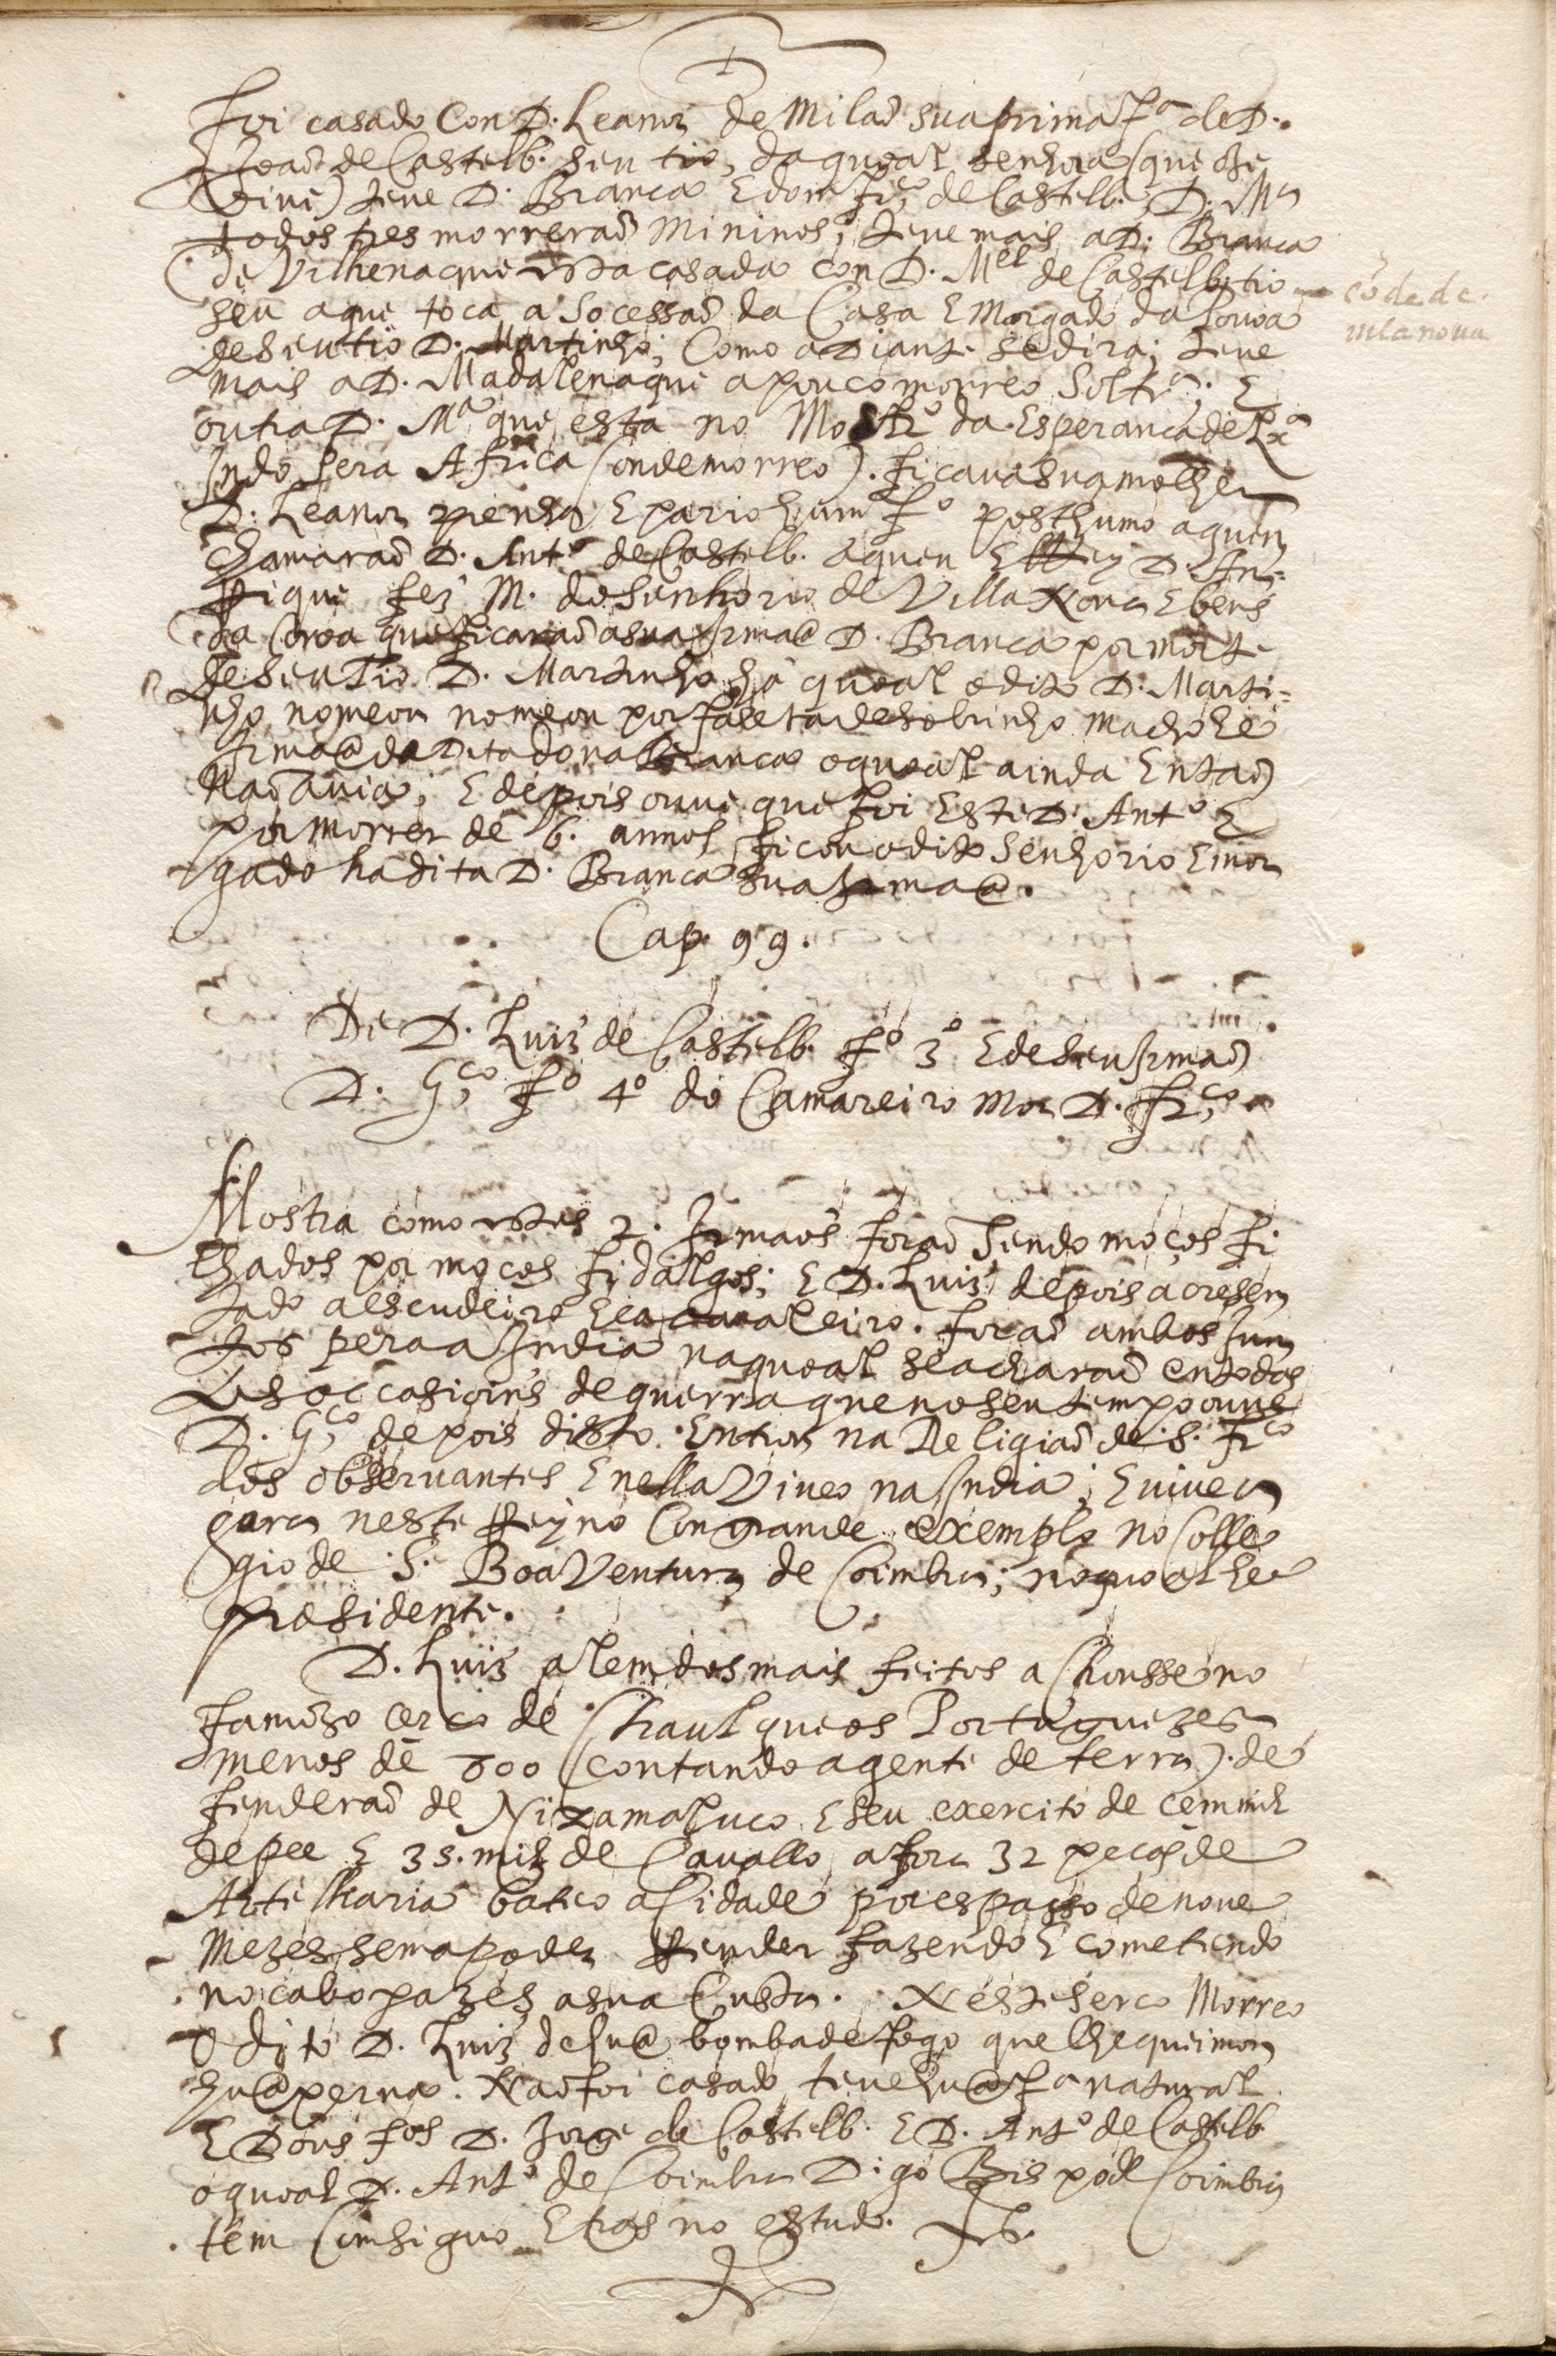 Foi casado Con D. Leanor de Milaõ sua prima fª de D.
Joaõ de Castelb. seu tio, da quoal senhora (que he
Vive) teve D. Branca E dom Fr.co de Castelb. D. Mª
todos tres morreraõ Mininos; teve mais a D. Branca
de Vilhena que esta casada con D. Mel de Castelb. tio
seu a que toca a Socessaõ da Casa E Morgado da Povoa
de seu tio D. Martinho; Como a Diante se dira; teve
mais a D. Madalena que a pouco morreo Soltrª. E
outra D. Mª que está no Mostrº da Esperança de Lxª
Indo pera Africa (onde morreo). ficava sua molher
D. Leanor prenha E pario hum fº posthumo a quem
chamaraõ D. Antº de Castelb. a quem Elrey D. An-
rrique fez M. do senhorio de Villa Nova E bens
da Coroa que ficaraõ a sua Irmaã D. Branca por morte
de seu Tio D. Martinho há quoal o dito D. Marti=
nho nomeou nomeou por falta de sobrinho macho hé
Irmaã da Dita dona Branca o quoal ainda Entaõ
Naõ avia; E depois ouve que foi Este D. Antº E
por morrer de 6. annos ficou o dito Senhorio E mor
gado ha dita D. Branca sua Irmaã.
cõde de
vila nova
Cap. 99.
De D. Luiz de Castelb. fº 3º E de seu Irmaõ
D. G.co fº 4º do Camareiro Mor D. Fr.co
Mostra como estes 2. Irmaõs foraõ Sendo moços fi
lhados por moços fidalgos; E D. Luiz depois acresen
tado a escudeiro he a cavaleiro. foraõ ambos Jun
tos pera a India na quoal se acharaõ en todas
as occasioins de guerra que no seu tempo ouve
D. G.co depois disto Entrou na Religiaõ de S. Fr.co
dos observantes E nella Viveo na India; E vive a
gora neste Reyno Con grande exemplo no Colle
gio de S. Boa Ventura de Coimbra; no quoal he
presidente.
D. Luiz alem dos mais feitos a Chousse no
famozo cerco de Chaul que os Portuguezes
menos de 800 (contando a gente de terra). de
fenderaõ de Nizamaluco E seu exercito de cem mil
de pee E 35. mil de Cavallo, a fora 32 peças de
Artelharia bateo a Cidade por espasso de nove
Mezes sem a poder Render fazendo E cometendo
no cabo pazes a sua Custa. Neste serco Morreo
O dito D. Luiz de huã bomba de fogo que lhe queimou
huã perna. Naõ foi casado, teve huã fª natural
E Dous fos D. Jorge de Castelb. E D. Antº de Castelb.
o quoal D. Antº de Coimbra Digo Bispo de Coimbra
tem Comsiguo E tras no estudo.